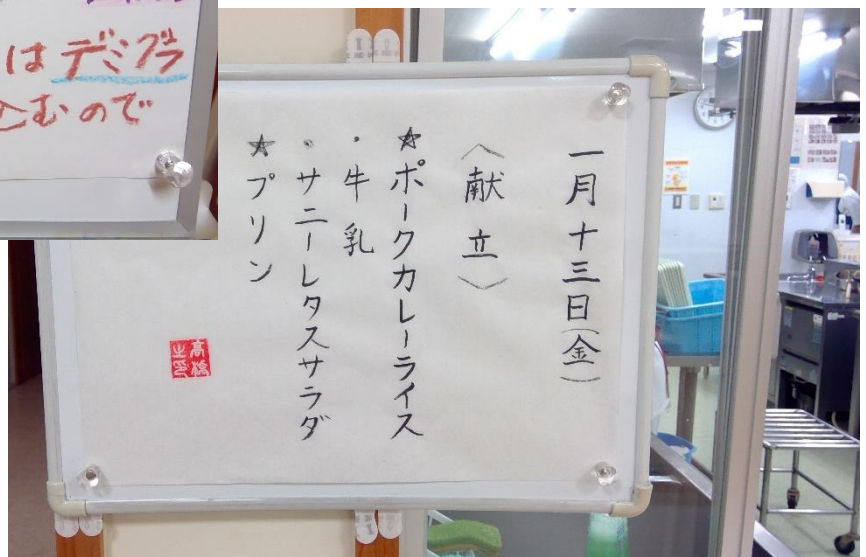 は デミグラ
込むので
一月十三日(金)
〈献立〉
★ポークカレーライス
・牛乳
・サニーレタスサラダ
★プリン
高橋
之印